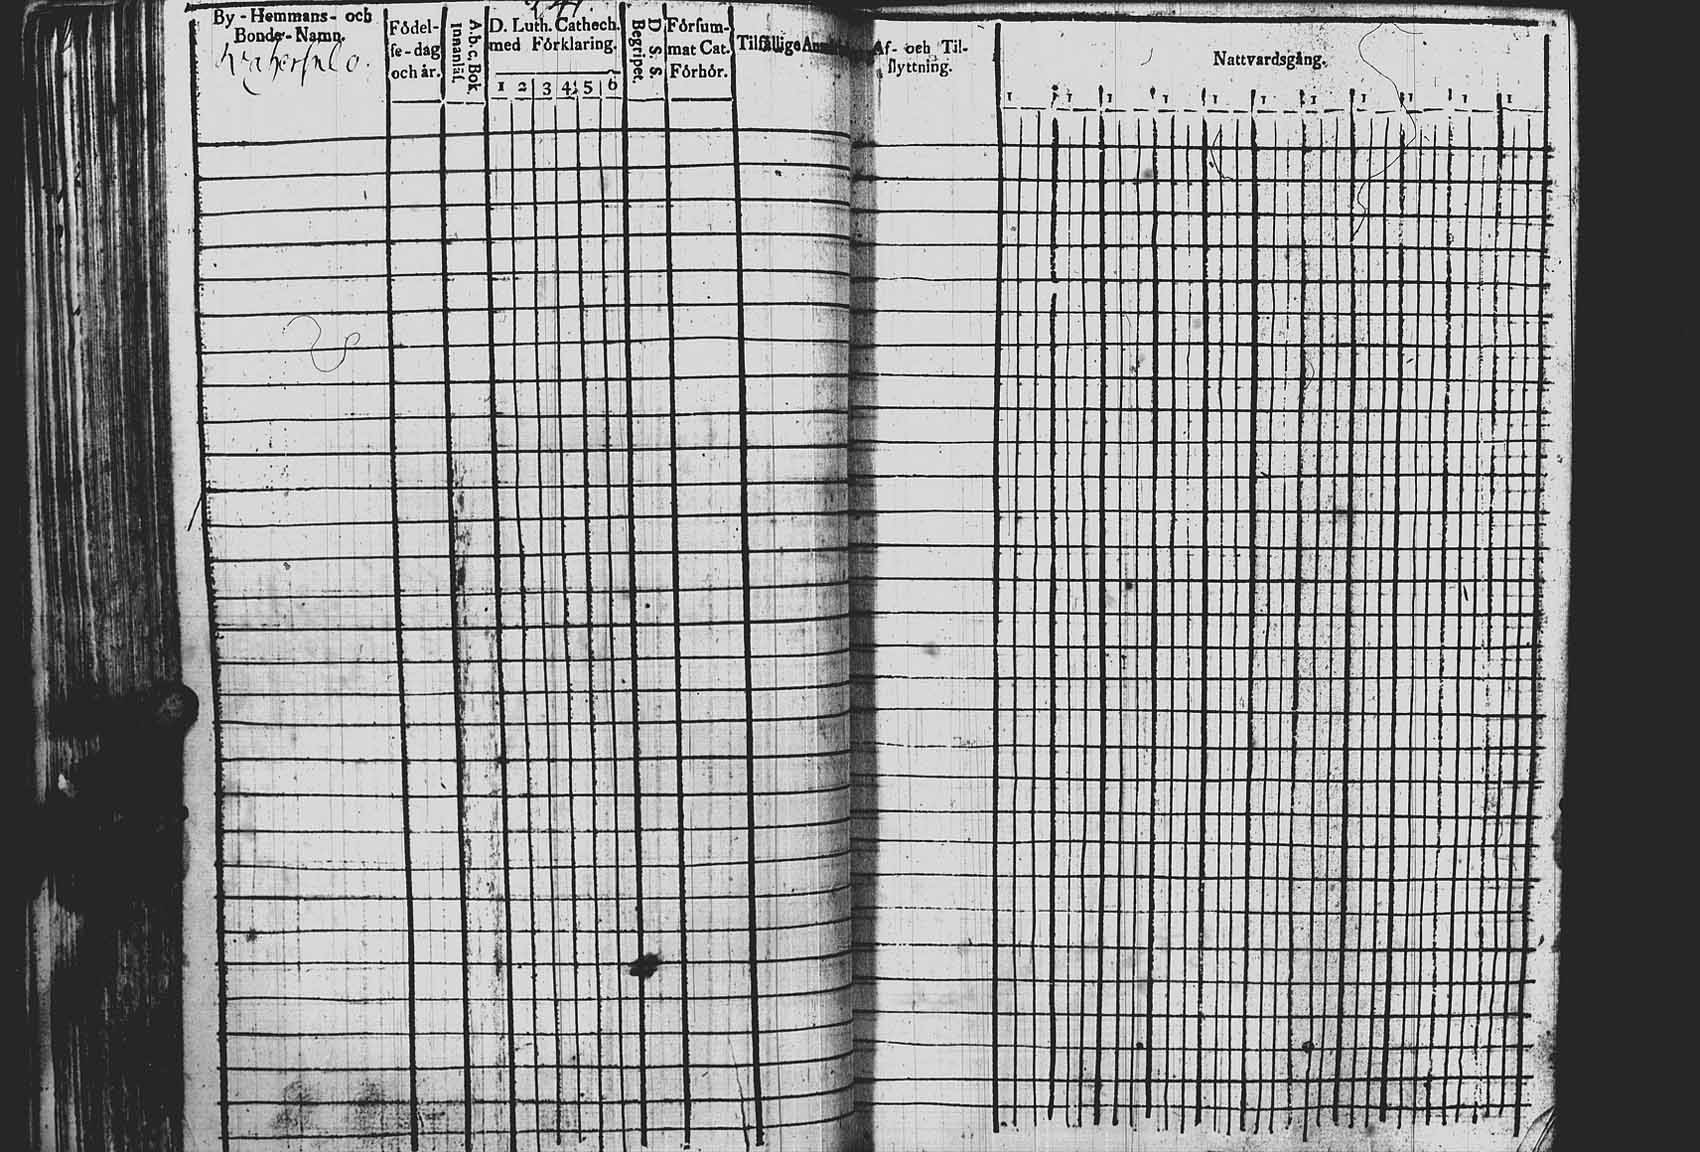 By - Hemmans- och
Bonde- Namn.
Födel-
se - dag
och år.
A.b.c. Bok
Innanläs.
D. Luth. Cathech.
med Förklaring.
1 2 3 4 5 6
D. S. S.
Begripet.
Försum-
mat Cat.
Förhör.
Tilfällige
Af- och Til-
flyttning.
Nattvardsgång.
1 1 1 1 1 1 1 1 1 1 1